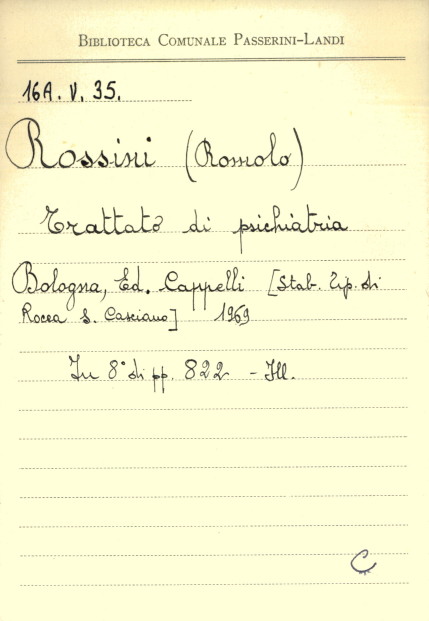 BIBLIOTECA COMUNALE PASSERINI-LANDI
16A. V. 35.
Rossini (Romolo)
Trattato di psichiatria
Bologna, Ed. Cappelli [Stab. Tip. di
Rocca S. Casciano] 1969
In 8° di pp. 822 - Ill.
C